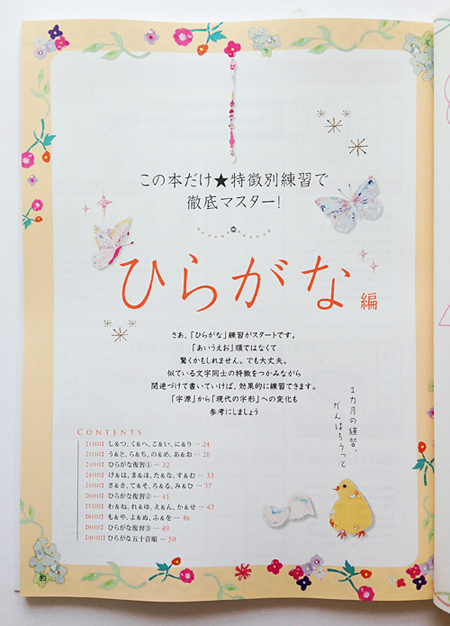 この本だけ★特徴別練習で
徹底マスター!
ひらがな編
さあ、「ひらがな」練習がスタートです。
「あいうえお」順ではなくて
驚くかもしれません。でも大丈夫。
似ている文字同士の特徴をつかみながら
関連づけて書いていけば、効果的に練習できます。
「字源」から「現代の字形」への変化も
参考にしましょう
1カ月の練習、
がんばろうっと
CONTENTS
【1日目】し&つ、く&へ、こ&い、に&り … 24
【2日目】う&と、ら&ち、の&め、あ&お … 28
ひらがな復習① … 32
け&は、ま&ほ、た&な、す&む … 33
さ&き、て&そ、ろ&る、み&ひ … 37
ひらがな復習② … 41
わ&ね、れ&ゆ、え&ん、か&せ … 42
も&や、よ&ぬ、ふ&を … 46
ひらがな復習③ … 49
ひらがな五十音順 … 50
23